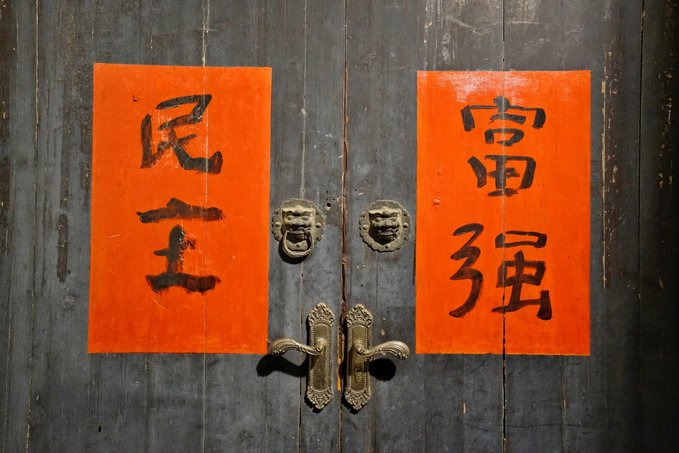 富强
民主